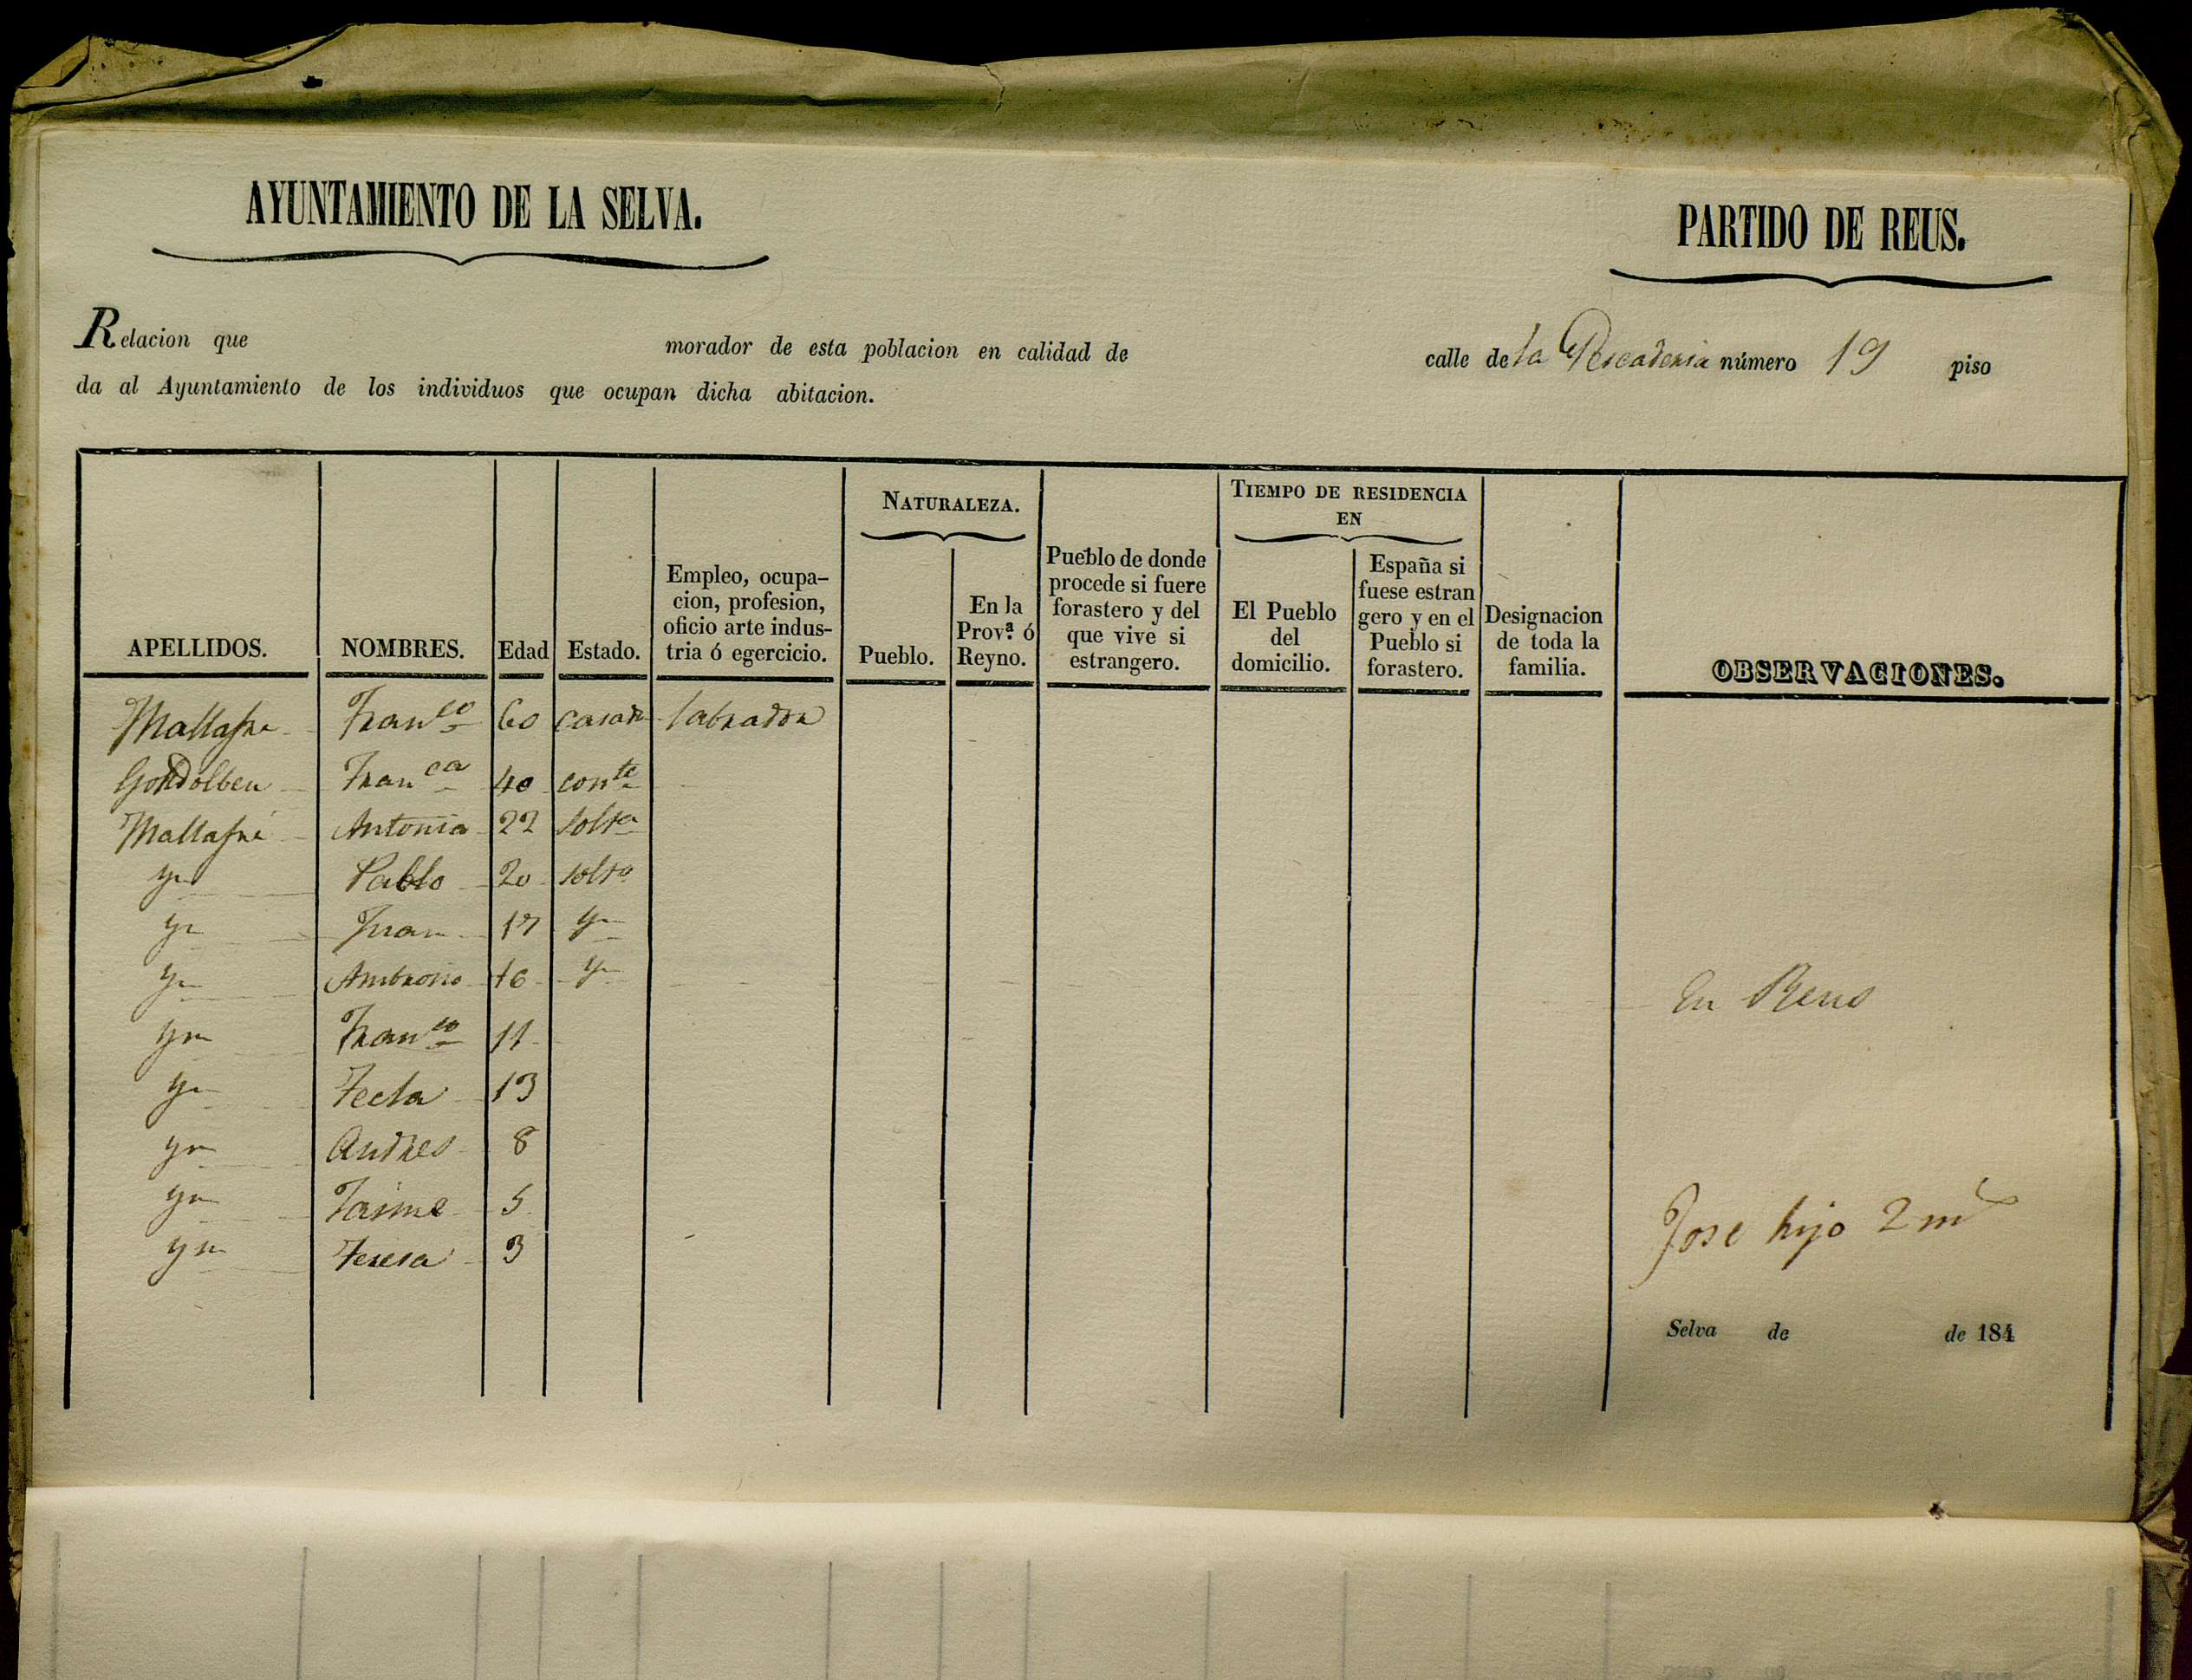 AYUNTAMIENTO DE LA SELVA.
PARTIDO DE REUS.
Relacion que morador de esta poblacion en calidad de calle de la Pescaderia número 19 piso
da al Ayuntamiento de los individuos que ocupan dicha abitacion.
APELLIDOS.
NOMBRES.
Edad
Estado.
Empleo, ocupa-
cion, profesion,
oficio arte indus-
tria ó egercicio.
NATURALEZA.
Pueblo.
En la
Prov.ª ó
Reyno.
Pueblo de donde
procede si fuere
forastero y del
que vive si
estrangero.
TIEMPO DE RESIDENCIA
EN
El Pueblo
del
domicilio.
España si
fuese estran
gero y en el
Pueblo si
forastero.
Designacion
de toda la
familia.
OBSERVACIONES.
Mallafre Fran.co 60 casado labrador
Fran.ca 40 con.te
Mallafré Antonia 22 solt.a
Yn Pablo 20 solt.o
Yn Juan 17 Yn
Yn Ambrosio 16 Yn En Reus
Yn Fran.co 11
Yn Tecla 13
Yn Andres 8
Yn Jaime 5
Yn Teresa 3
Jose hijo 2 m.s
Selva de de 184